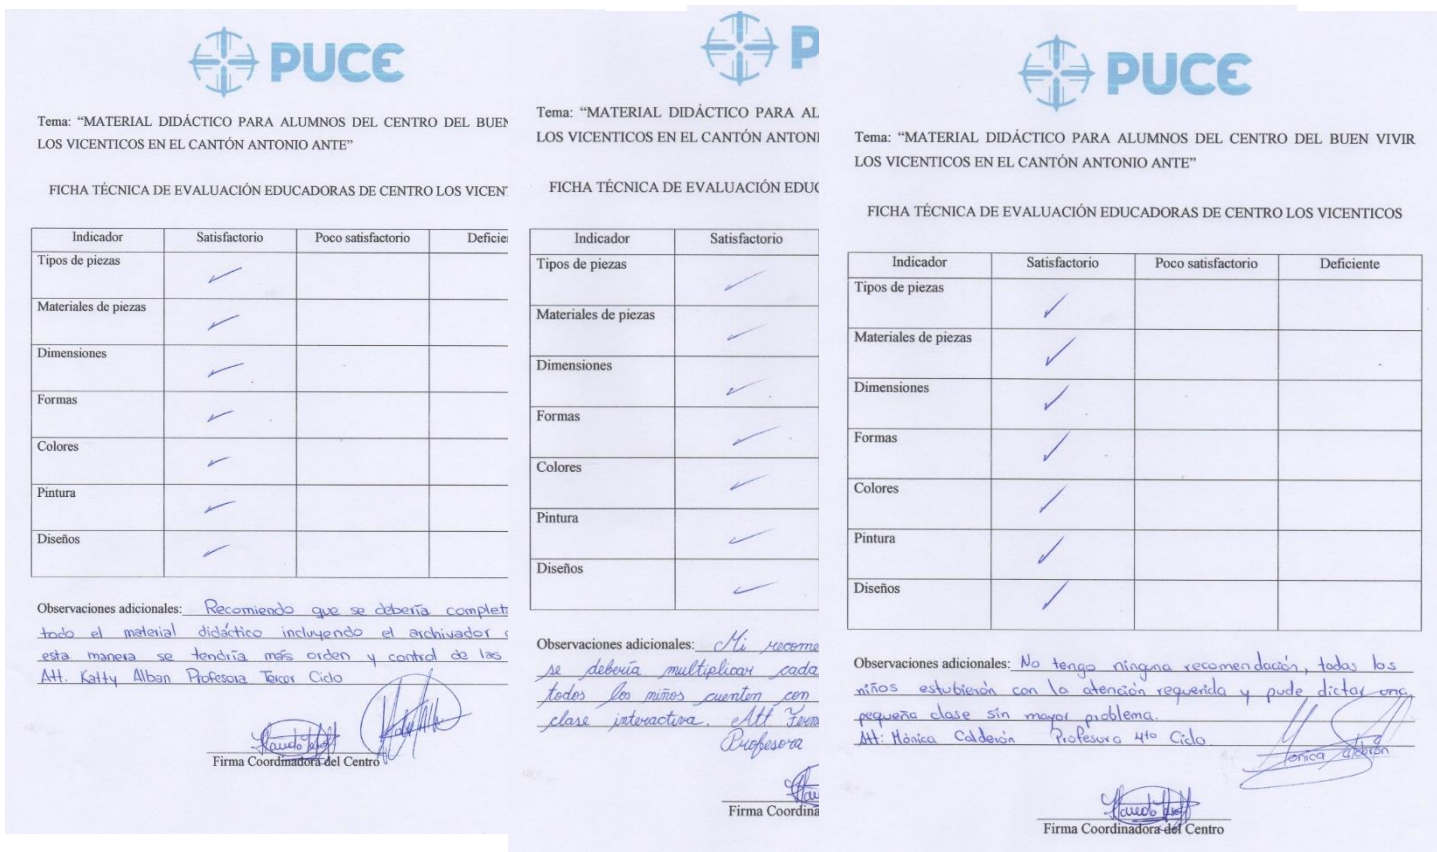 PUCE
Tema: “MATERIAL DIDÁCTICO PARA ALUMNOS DEL CENTRO DEL BUEN
LOS VICENTICOS EN EL CANTÓN ANTONIO ANTE”
FICHA TÉCNICA DE EVALUACIÓN EDUCADORAS DE CENTRO LOS VICENT
Indicador Satisfactorio Poco satisfactorio Deficie
Tipos de piezas
Materiales de piezas
Dimensiones
Formas
Colores
Pintura
Diseños
Observaciones adicionales: Recomiendo que se debería complet
todo el material didáctico incluyendo el archivador
esta manera se tendría más orden y control de las
Att. Katty Alban Profesora Tercer Ciclo
Firma Coordinadora del Centro
P
Tema: “MATERIAL DIDÁCTICO PARA AL
LOS VICENTICOS EN EL CANTÓN ANTONI
FICHA TÉCNICA DE EVALUACIÓN EDUC
Indicador Satisfactorio
Tipos de piezas
Materiales de piezas
Dimensiones
Formas
Colores
Pintura
Diseños
Observaciones adicionales: Mi recome
se debería multiplicar cada
todos los niños cuenten con
clase interactiva. Att Fern
Profesora
Firma Coordina
PUCE
Tema: “MATERIAL DIDÁCTICO PARA ALUMNOS DEL CENTRO DEL BUEN VIVIR
LOS VICENTICOS EN EL CANTÓN ANTONIO ANTE”
FICHA TÉCNICA DE EVALUACIÓN EDUCADORAS DE CENTRO LOS VICENTICOS
Indicador Satisfactorio Poco satisfactorio Deficiente
Tipos de piezas
Materiales de piezas
Dimensiones
Formas
Colores
Pintura
Diseños
Observaciones adicionales: No tengo ninguna recomendación, todos los
niños estubierón con la atención requerida y pude dictar una
pequeña clase sin mayor problema.
Att: Mónica Calderón Profesora 4to Ciclo
Firma Coordinadora del Centro